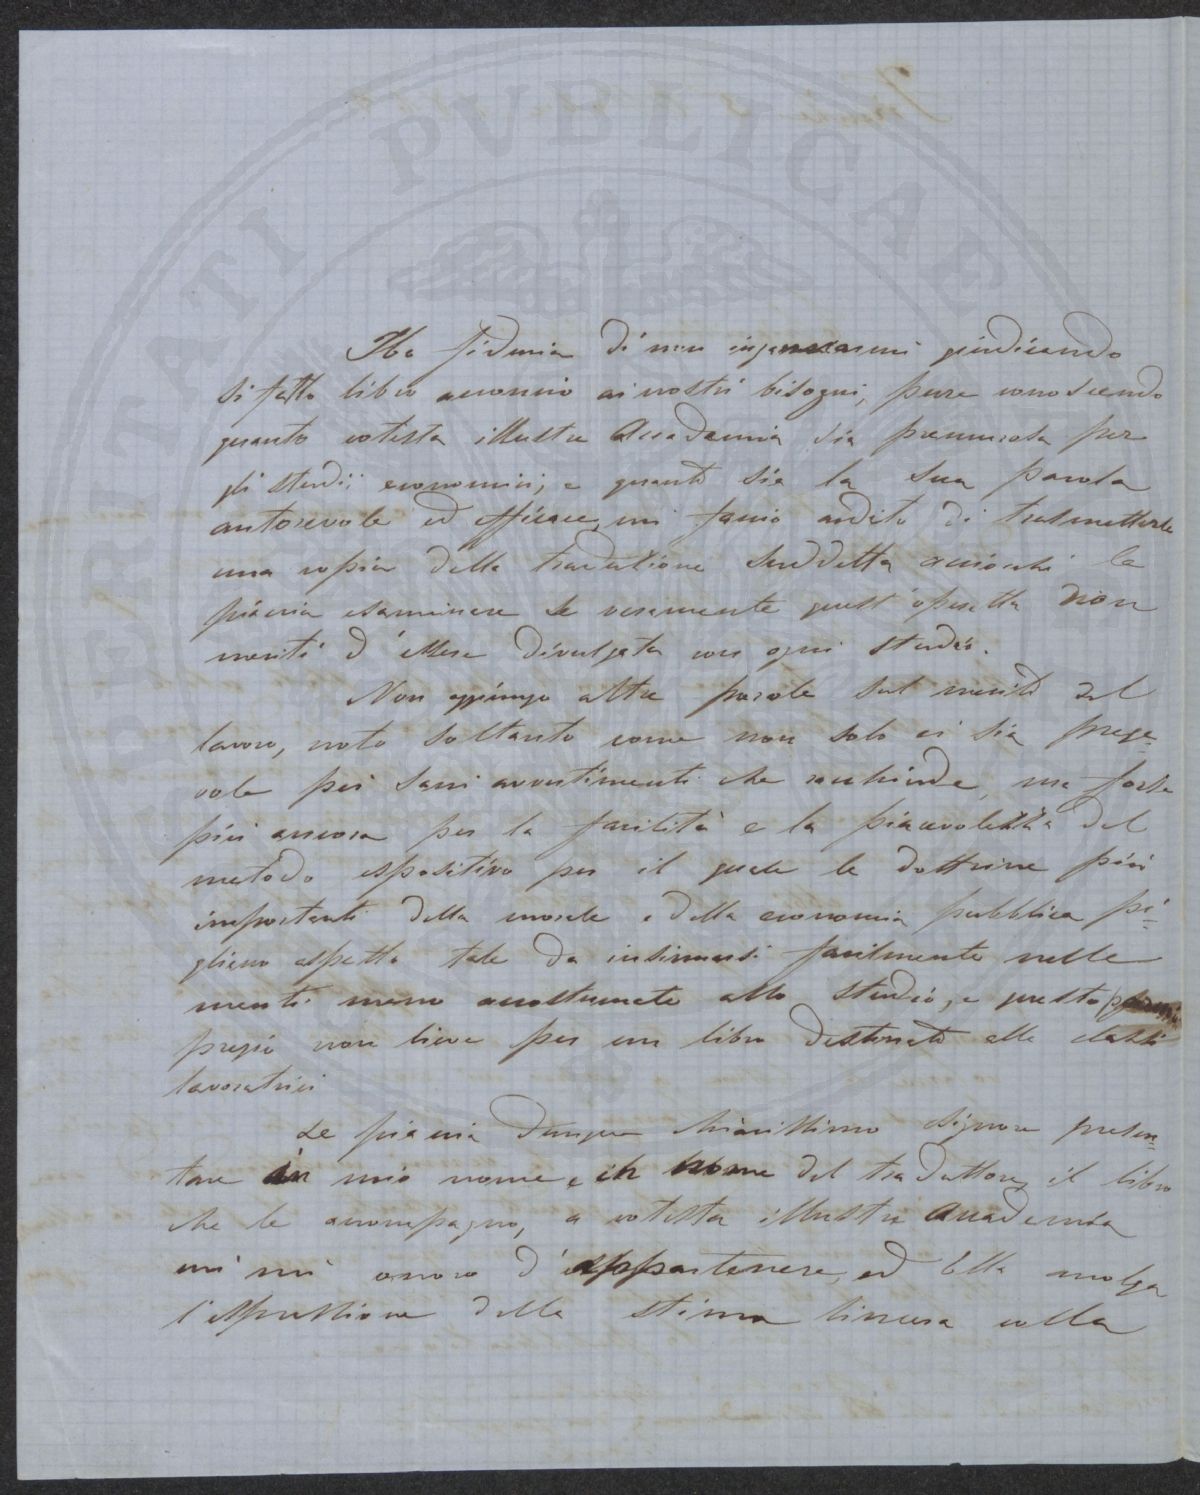 Ho fiducia di non ingannarmi giudicando
sifatto libro acconcio ai nostri bisogni, pure conoscendo
quanto cotesta illustre Accademia sia premurosa per
gli studii economici, e quanto sia la sua parola
autorevole ed efficace, mi faccio ardito di trasmetterle
una copia della traduzione suddetta acciocché le
piaccia esaminare se veramente quest'operetta non
meriti d'essere divulgata con ogni studio.
Non aggiungo altre parole sul merito del
lavoro, noto soltanto come non solo ei sia prege-
vole pei sani avvertimenti che racchiude, ma forse
più ancora per la facilità e la piacevolezza del
metodo espositivo per il quale le dottrine più
importanti della morale e della economia pubblica pi-
gliano aspetto tale da insinuarsi facilmente nelle
menti meno accostumate allo studio, e questo
pregio non lieve per un libro destinato alle classi
lavoratrici
Le piaccia dunque chiarissimo signore presen-
tare in mio nome, e in nome del traduttore, il libro
che le accompagno, a cotesta illustre Accademia
cui mi onoro d'appartenere, ed Ella accolga
l'espressione della stima sincera colla
PUBLICAE